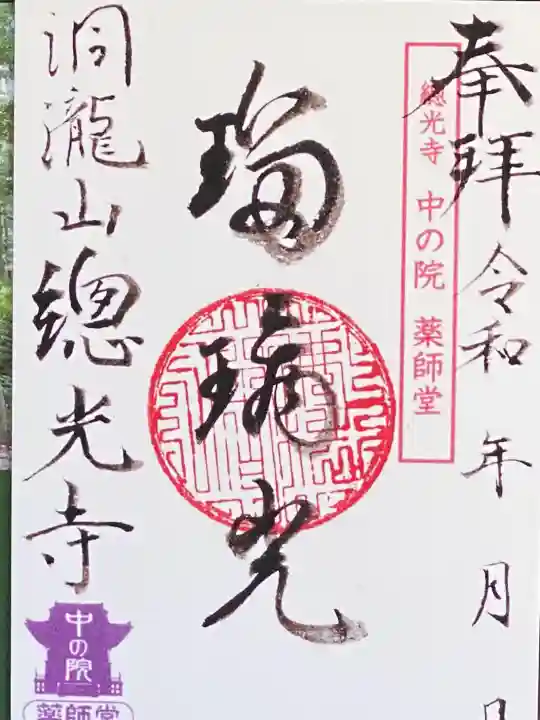 奉拝 令和 年 月 日
總光寺 中の院 薬師堂
瑠璃光
洞瀧山總光寺
中の院
薬師堂